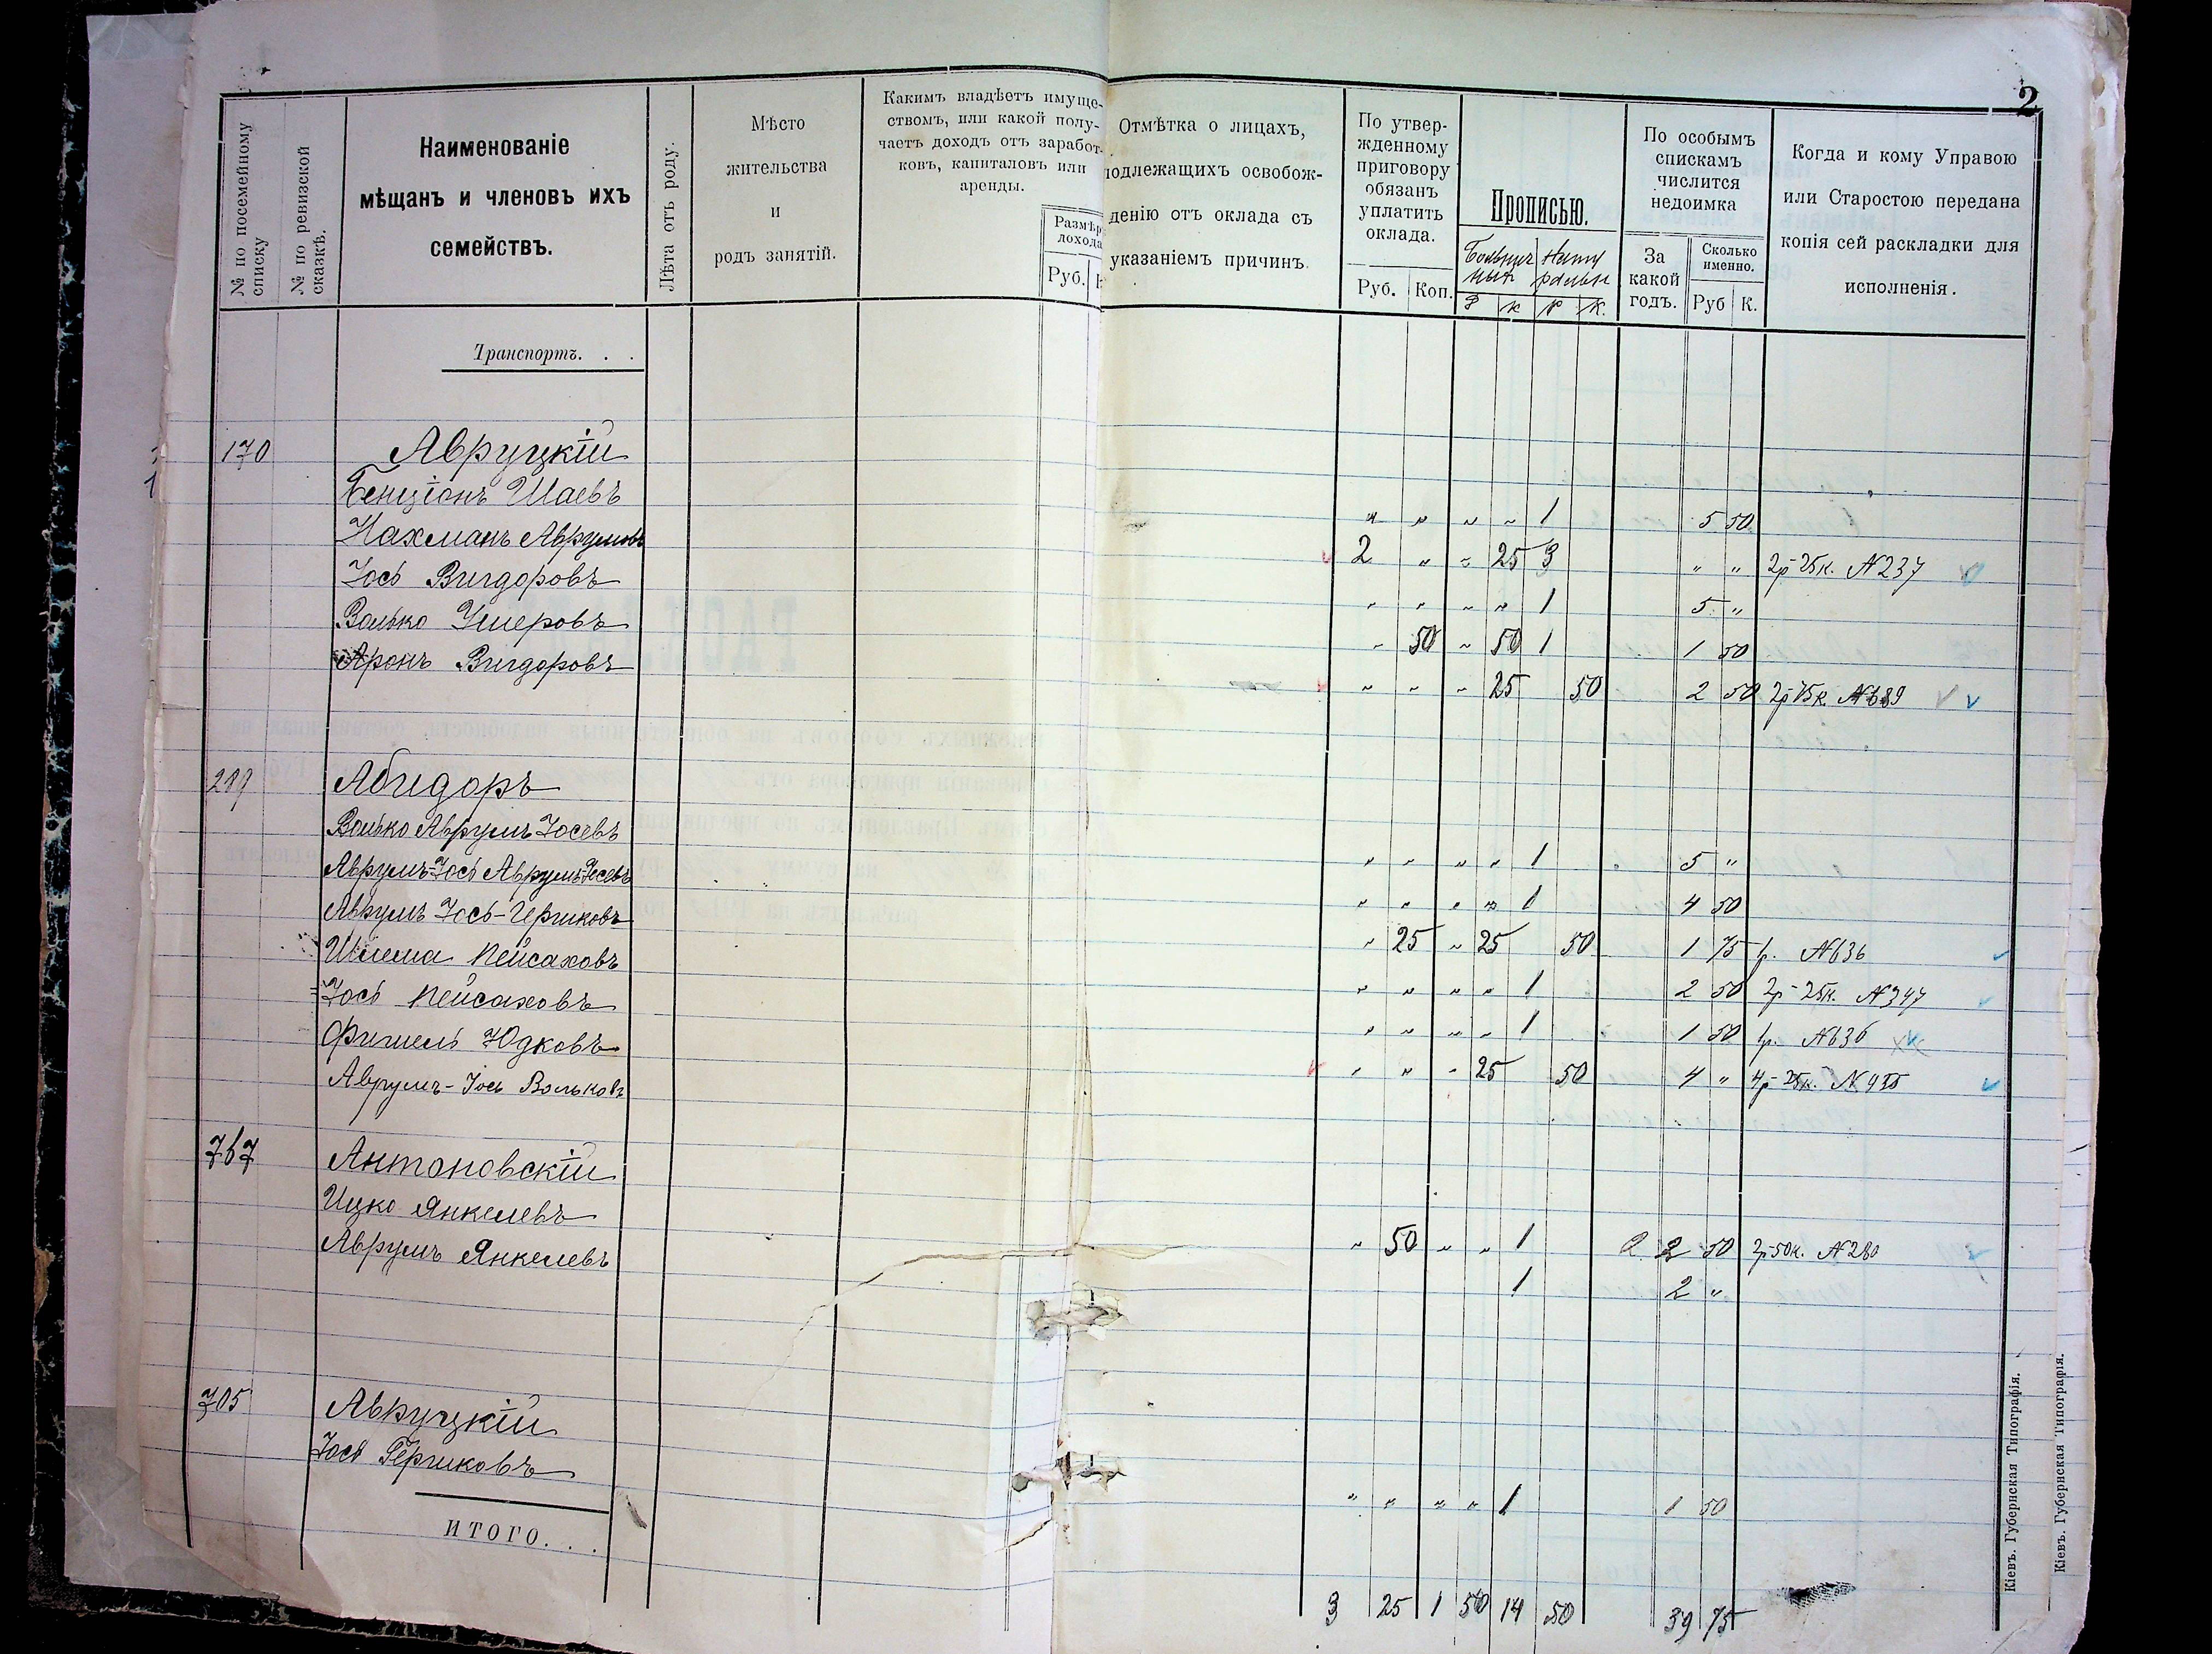 2
№ по посемейному списку
№ по ревизской сказкѣ.
Наименованіе
мѣщанъ и членовъ ихъ
семействъ.
Лѣта отъ роду.
Мѣсто
жительства
и
родъ занятій.
Какимъ владѣетъ имуще-
ствомъ, или какой полу-
чаетъ доходъ отъ заработ-
ковъ, капиталовъ или
аренды.
Размѣр
дохода
Руб.
Отмѣтка о лицахъ,
подлежащихъ освобож-
денію отъ оклада съ
указаніемъ причинъ.
По утвер-
жденному
приговору
обязанъ
уплатить
оклада.
Руб. Коп.
Прописью.
Р К Р К.
По особымъ
спискамъ
числится
недоимка
За
какой
годъ.
Сколько
именно.
Руб К.
Когда и кому Управою
или Старостою передана
копія сей раскладки для
исполненія.
Транспортъ. . .
170 Авруцкій
Бенціонъ Шаевъ " " " " 1 5 50
Нахманъ Аврумовъ 2 " " 25 3 " " 2р-25к. №237
Іось Вигдоровъ " " " " 1 5 "
Волько Ушеровъ " 50 " 50 1 1 50
Аронъ Вигдоровъ " " " 25 50 2 50 2р75к. №689
289 Абидоръ
Волько Аврумъ Іосевъ " " " " 1 5 "
Аврумъ-Іось Аврумъ Іосевъ " " " " 1 4 50
Аврумъ Іось-Гершковъ " 25 " 25 50 1 75 1р. №636
Шлема Пейсаховъ " " " " 1 2 50 2р-25к. №347
Іось Пейсаховъ " " " " 1 1 50 1р. №636
Фишель Юдковъ " " " 25 50 4 " 4р-25к.
Аврумъ-Іось Вольковъ
767 Антоновскій
Ицко Янкелевъ " 50 " " 1 2 50 2р-50к. №280
Аврумъ Янкелевъ 1 2 "
705 Авруцкій
Іось Гершковъ " " " " 1 1 50
ИТОГО. . . 3 25 1 50 14 50 39 75
Кіевъ. Губернская Типографія.
Кіевъ. Губернская Типографія.